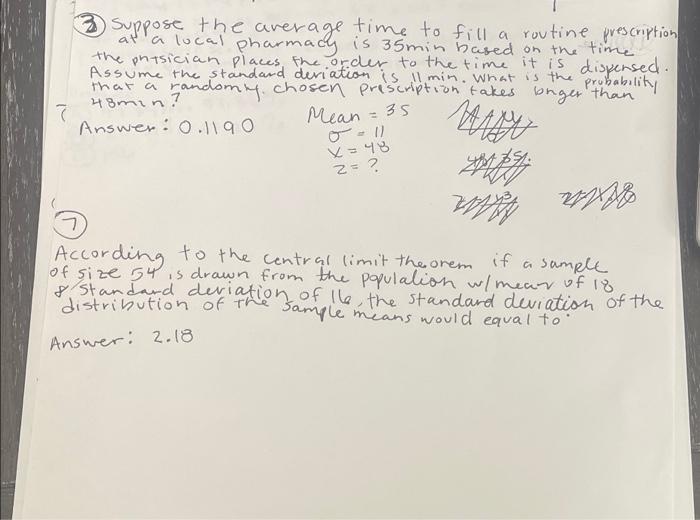 3 Suppose the average time to fill a routine prescription
at a local pharmacy is 35min based on the time
the phisician places the order to the time it is dispensed.
Assume the standard deviation is 11 min. What is the probability
that a randomly chosen prescription takes longer than
48min?
Answer: 0.1190
Mean = 35
σ = 11
X = 48
z = ?
7
According to the central limit theorem if a sample
of size 54 is drawn from the population w/mean of 18
& Standard deviation of 16, the standard deviation of the
distribution of the sample means would equal to:
Answer: 2.18